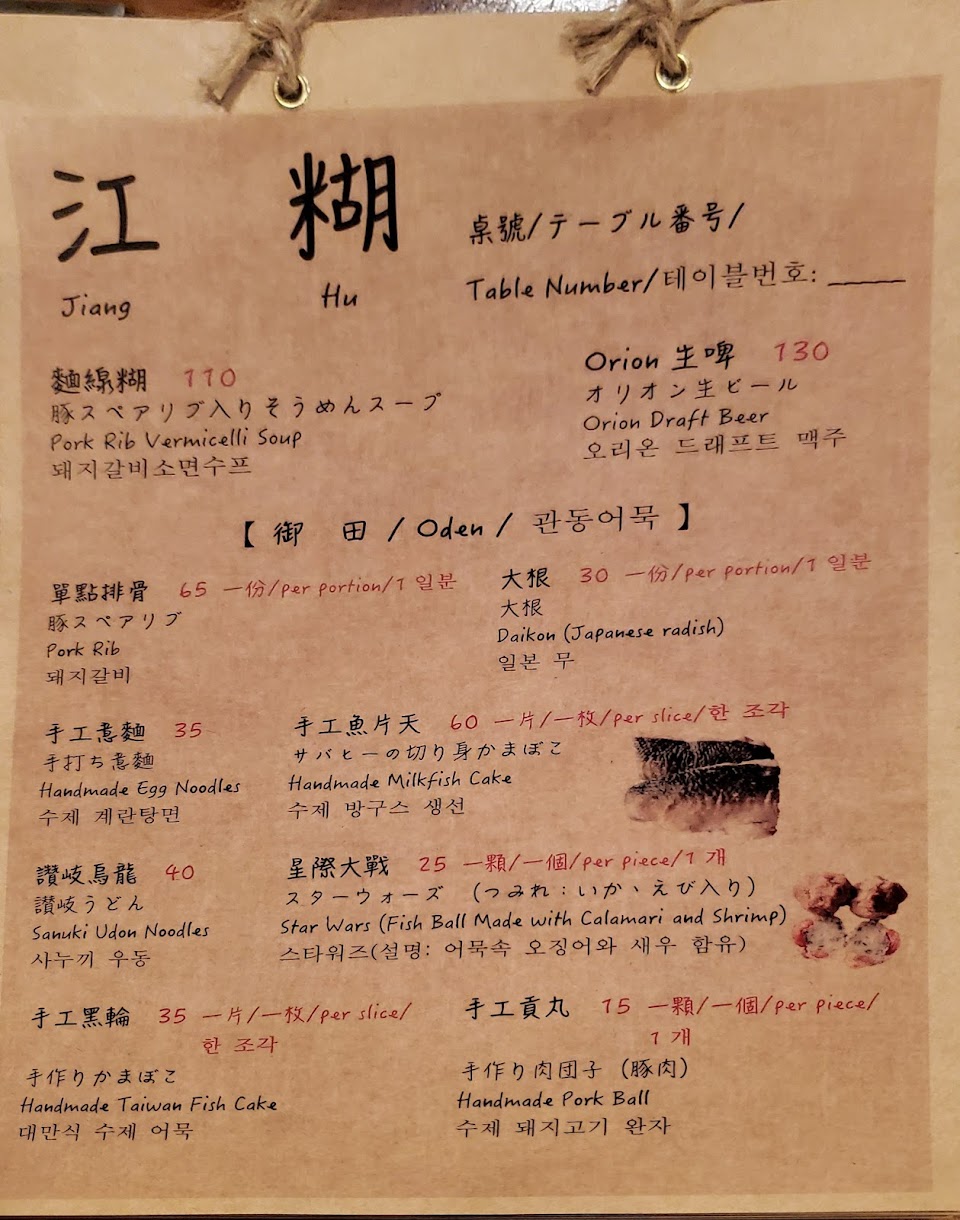 江 糊
Jiang Hu
桌號/テーブル番号/
Table Number/테이블번호: _____
麵線糊 110
豚スペアリブ入りそうめんスープ
Pork Rib Vermicelli Soup
돼지갈비소면수프
Orion 生啤 130
オリオン生ビール
Orion Draft Beer
오리온 드래프트 맥주
【 御 田 / Oden / 관동어묵 】
單點排骨 65 一份/per portion/1 일분
豚スペアリブ
Pork Rib
돼지갈비
大根 30 一份/per portion/1 일분
大根
Daikon (Japanese radish)
일본 무
手工意麵 35
手打ち意麵
Handmade Egg Noodles
수제 계란탕면
手工魚片天 60 一片/一枚/per slice/한 조각
サバヒーの切り身かまぼこ
Handmade Milkfish Cake
수제 방구스 생선
讃岐烏龍 40
讃岐うどん
Sanuki Udon Noodles
사누끼 우동
星際大戰 25 一顆/一個/per piece/1 개
スターウォーズ (つみれ:いか、えび入り)
Star Wars (Fish Ball Made with Calamari and Shrimp)
스타워즈(설명: 어묵속 오징어와 새우 함유)
手工黑輪 35 一片/一枚/per slice/
한 조각
手作りかまぼこ
Handmade Taiwan Fish Cake
대만식 수제 어묵
手工貢丸 15 一顆/一個/per piece/
1 개
手作り肉団子 (豚肉)
Handmade Pork Ball
수제 돼지고기 완자